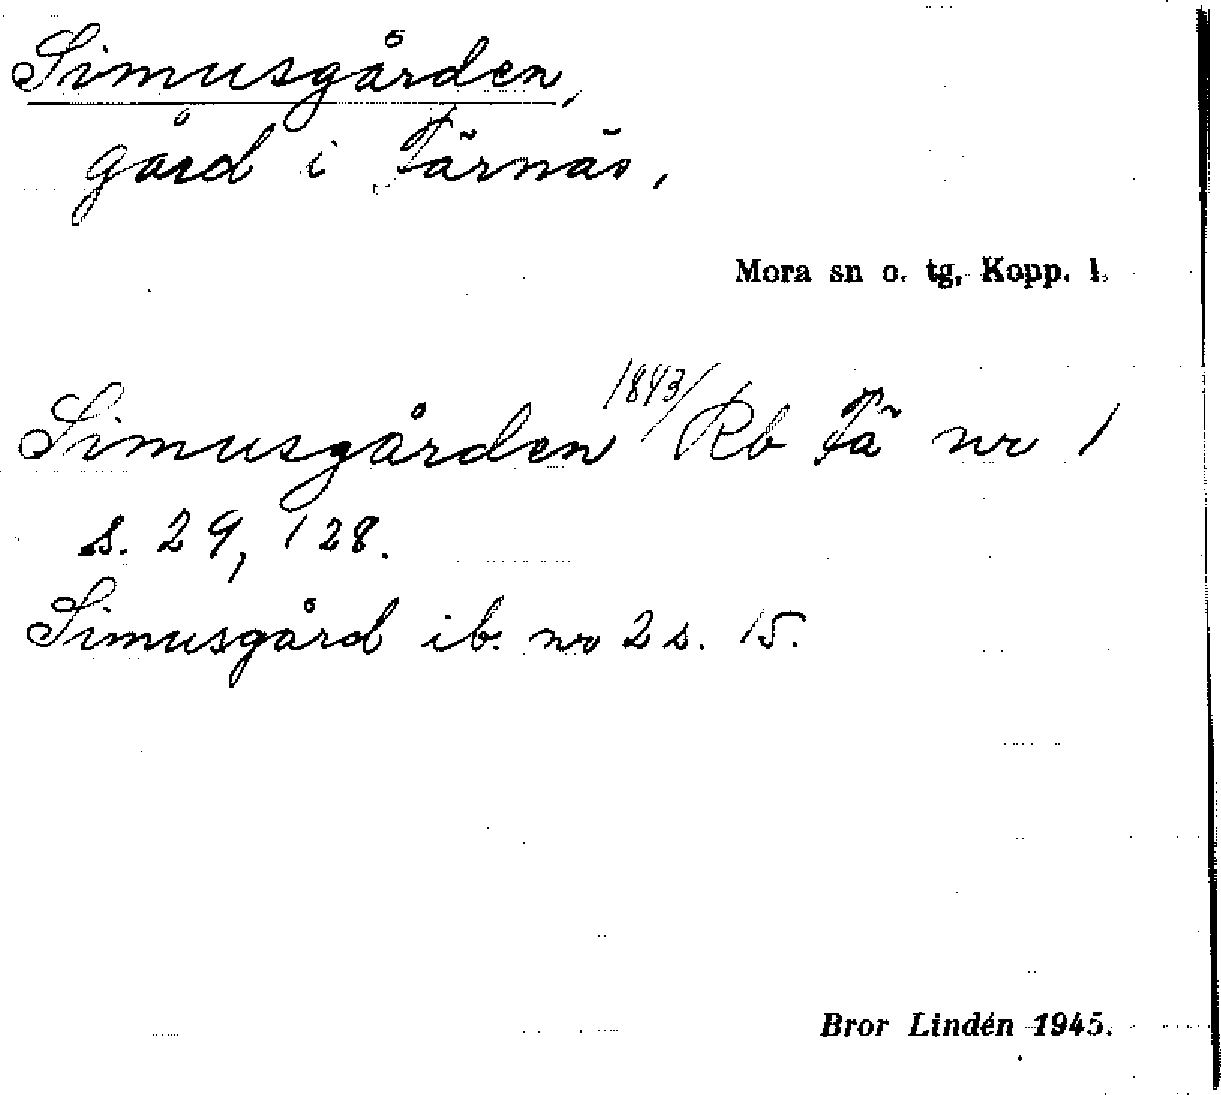 Simusgården,
gård i Färnäs,
Mora sn o. tg, Kopp. l.
Simusgården 1843/ Rb Fä nr 1
s. 29, 128.
Simusgård ib. nr 2 s. 15.
Bror Lindén 1945.